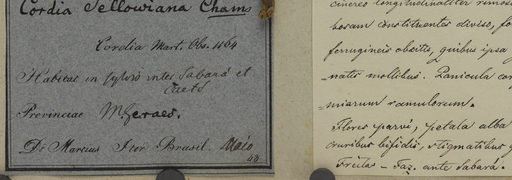 Cordia Sellowiana Cham
Cordia Mart. Obs. 1164
Habitat in sylvis inter Sabará et
Caeté
Provinciae M. Geraes.
Dr Martius Iter Brasil. Maio
40
cinereo longitudinaliter rimoso
bosam constituentes diviso, fo
ferrugineis obsitis, quibus ipsa
natis mollibus. Panicula cor
miarum ramulorum.
Flores parvi, petala alba
cruribus bifidis, stigmatibus
Freitas - Faz. ante Sabará.